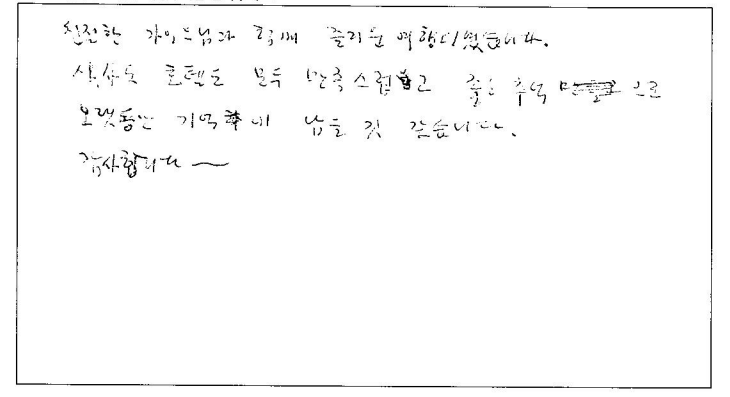 친절한 가이드님과 함께 즐거운 여행이였습니다.
식사도 호텔도 모두 만족스럽고 좋은 추억으로
오랫동안 기억에 남을 것 같습니다.
감사합니다 ~